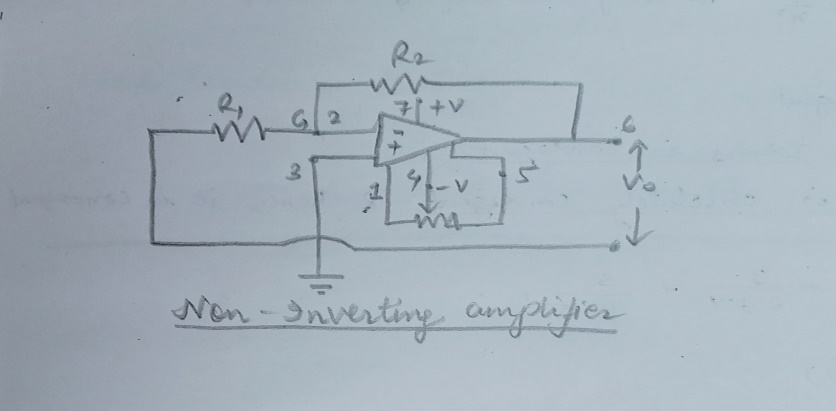 R₂
R₁ G 2 7 +V
- 6
+
3 1 4 -V 5 V₀
Non-Inverting amplifier